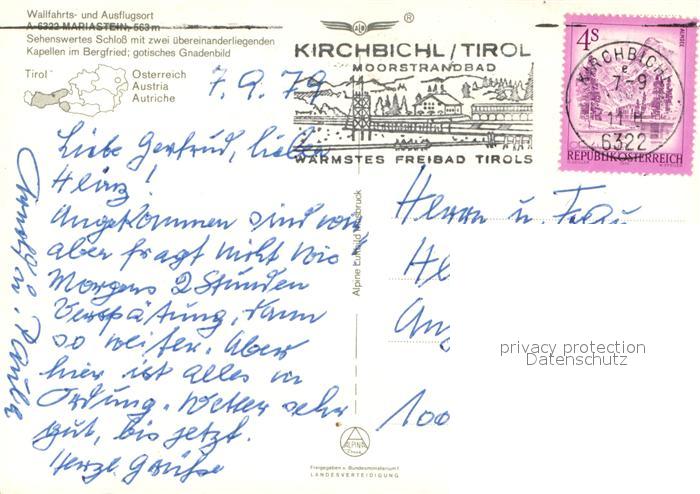 Wallfahrts- und Ausflugsort
A-6322 MARIASTEIN, 563 m
Sehenswertes Schloß mit zwei übereinanderliegenden
Kapellen im Bergfried; gotisches Gnadenbild
Tirol
Österreich
Austria
Autriche
7.9.79
Liebe Gertrud, lieber
Heinz!
Angekommen sind wir
aber fragt nicht wie
Morgens 2 Stunden
Verspätung, dann
so weiter. Aber
hier ist alles in
Ordnung. Wetter sehr
gut, bis jetzt.
Herzl. Grüße
Alpine Luftbild Innsbruck
®
KIRCHBICHL/TIROL
MOORSTRANDBAD
WÄRMSTES FREIBAD TIROLS
4S
REPUBLIK ÖSTERREICH
KIRCHBICHL
e
7-9
11 H
6322
Herrn u. Frau
100
privacy protection
Datenschutz
ALPINE
Freigegeben v. Bundesministerium f.
LANDESVERTEIDIGUNG